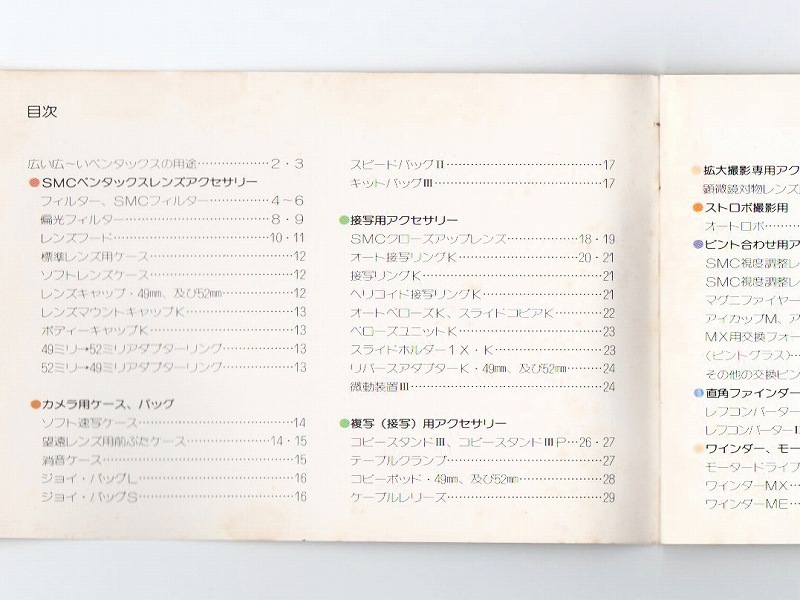 目次
広い広~いペンタックスの用途………………2・3
●SMCペンタックスレンズアクセサリー
フィルター、SMCフィルター……………4~6
偏光フィルター………………………………8・9
レンズフード…………………………………10・11
標準レンズ用ケース…………………………12
ソフトレンズケース…………………………12
レンズキャップ・49㎜、及び52㎜……………12
レンズマウントキャップK…………………13
ボディーキャップK…………………………13
49ミリ→52ミリアダプターリング……………13
52ミリ→49ミリアダプターリング……………13
●カメラ用ケース、バッグ
ソフト速写ケース……………………………14
望遠レンズ用前ぶたケース…………………14・15
消音ケース……………………………………15
ジョイ・バッグL……………………………16
ジョイ・バッグS……………………………16
スピードバッグⅡ……………………………17
キットバッグⅢ………………………………17
●接写用アクセサリー
SMCクローズアップレンズ………………18・19
オート接写リングK…………………………20・21
接写リングK…………………………………21
ヘリコイド接写リングK……………………21
オートベローズK、スライドコピアK………22
ベローズユニットK…………………………23
スライドホルダー1X・K……………………23
リバースアダプターK・49㎜、及び52㎜……24
微動装置Ⅲ……………………………………24
●複写(接写)用アクセサリー
コピースタンドⅢ、コピースタンドⅢP…26・27
テーブルクランプ……………………………27
コピーポッド・49㎜、及び52㎜………………28
ケーブルレリーズ……………………………29
●拡大撮影専用アク
顕微鏡対物レンズ
●ストロボ撮影用
オートストロボ………
●ピント合わせ用ア
SMC視度調整レ
SMC視度調整レ
マグニファイヤー
アイカップM、ア
MX用交換フォー
(ピントグラス)…
その他の交換ピン
●直角ファインダー
レフコンバーター
レフコンバーターⅡ
●ワインダー、モー
モータードライブ
ワインダーMX…
ワインダーME…